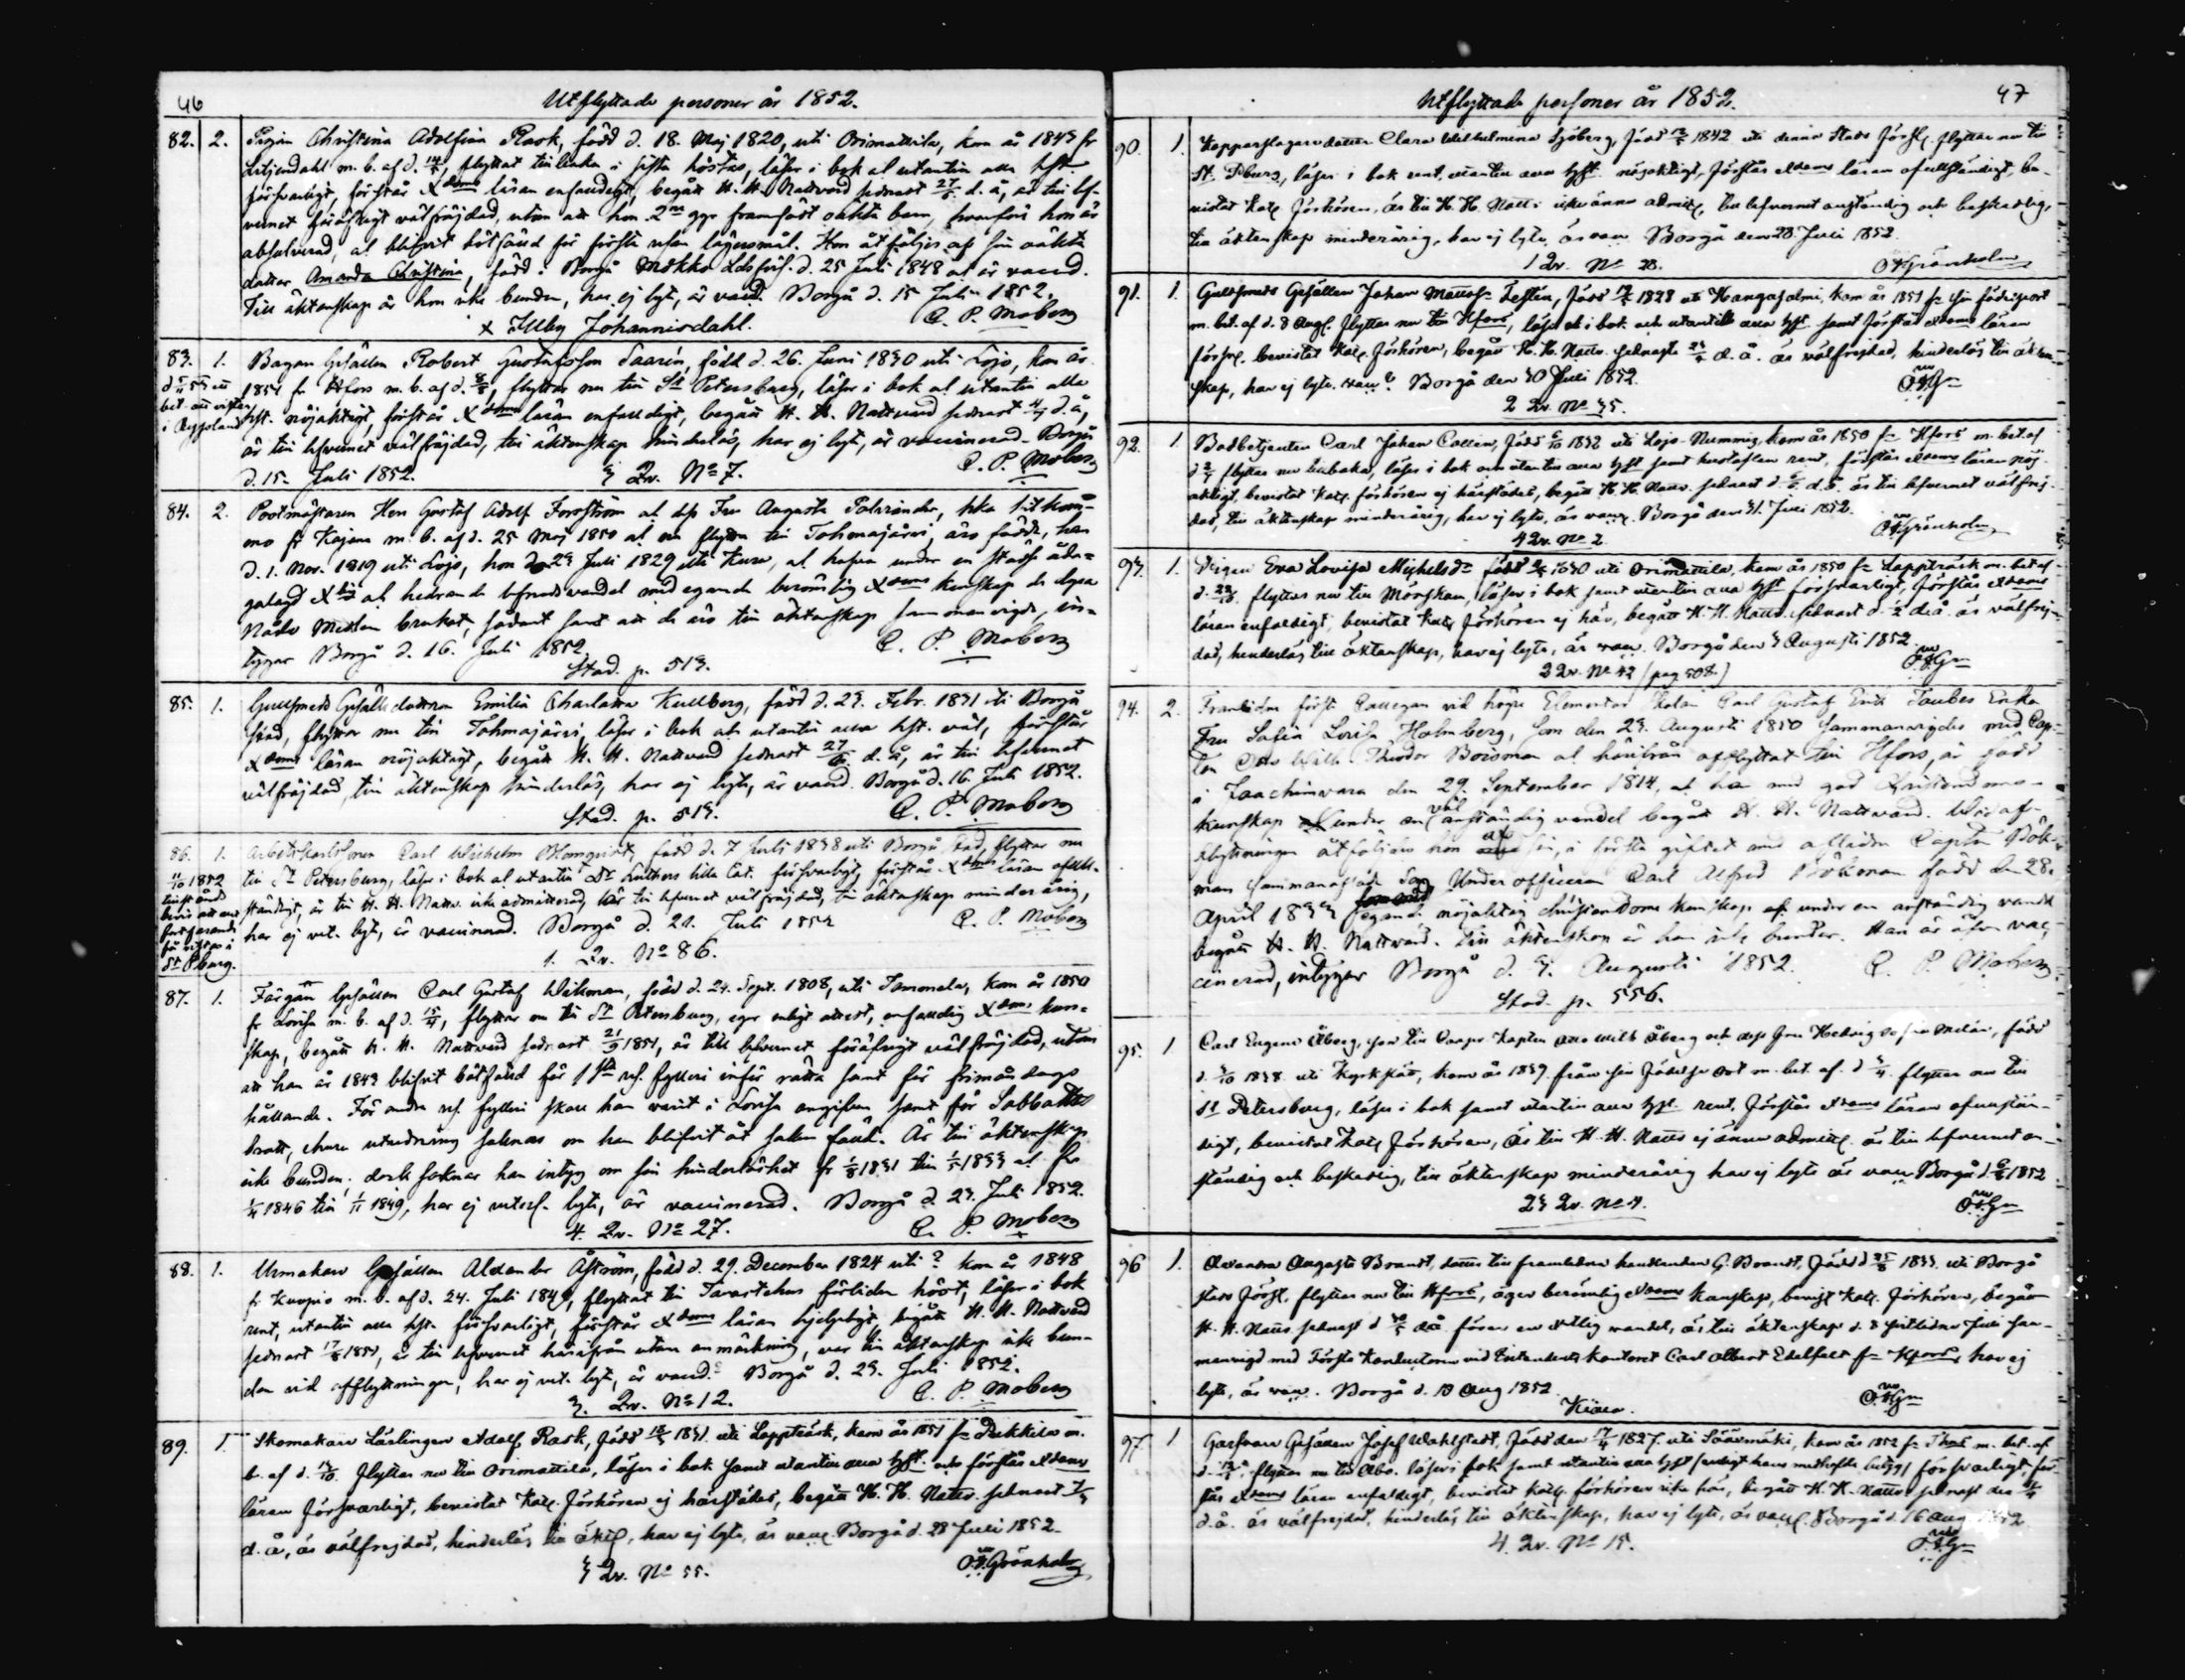 46
Utflyttade personer år 1852.
82. 2. Pigan Christina Adolfina Rask, född d. 18. Maj 1820, uti Orimattila, kom år 1843 fr
Liljendahl m. b. af d. flyttat tillbaka i sista höstas, läser i bok al utantill alla hft.
försvarligt, förstår Xdoms läran enfaldigt, begått H. H. Nattvard sednast 27/6 d. å, är till lef-
vernet föröfrigt välfräjdad, utom att hon 2ne ggr framfödt oäkta barn, hvarföre hon är
absolverad, al blifvit bötfäld för första resan lägersmål. Hon åtföljes af sin oäkta
dotter Amanda Christina, född i Borgå Mökko Lds förs. d. 25 Juli 1848 al är vaccd.
Till äktenskap är hon icke bunden, har ej lyte, är vaccd. Borgå d. 15 Juli 1852.
x Illby Johannisdahl. C. P. Moberg
83. 1. Bagare Gesällen Robert Gustafsson Saarin, född d. 26. Juni 1830 uti Lojo, kom år
1851 fr Hfors m. b. af d. 8/8, flyttar nu till St Petersburg, läser i bok al utantill alla
hft. nöjaktigt, förstår Xdoms läran enfaldigt, begått H. H. Nattvard sednast 4/7 d. å,
är till lefvernet välfräjdad, till äktenskap hinderlös, har ej lyte, är vaccinerad. Borgå
d. 15. Juli 1852. 3 Qv. No 7. C. P. Moberg
84. 2. Postmästaren Herr Gustaf Adolf Forsström al dess Fru Augusta Polviander, hka hitkom-
mo fr Kajana m. b. af d. 25 Maj 1850 al nu flytta till Tohmajärvi, äro födde, han
d. 1. Nov. 1819 uti Lojo, hon d. 23 Juli 1829 uti Kuru, al hafva under en städse åda-
galagd al hedrande lefnadsvandel med egande berömlig Xdoms kunskap de dyra
Nåde Medlen brukat, sådant samt att de äro till äktenskap sammanvigde, in-
tygar Borgå d. 16. Juli 1852. C. P. Moberg
Stad. p. 513.
85. 1. Gullsmeds Gesälls dottren Emilia Charlotta Kullberg, född d. 23. Febr. 1831 uti Borgå
stad, flyttar nu till Tohmajärvi, läser i bok och utantill alla hft. väl, förstår
Xdoms läran nöjaktigt, begått H. H. Nattvard sednast 27/6 d. å, är till lefvernet
välfräjdad, till äktenskap hinderlös, har ej lyte, är vaccd. Borgå d. 16. Juli 1852.
Stad. p. 513. C. P. Moberg
86. 1. Arbetskarlssonen Carl Wilhelm Blomqvist, född d. 7 Juli 1838 uti Borgå stad, flyttar nu
till St Petersburg, läser i bok al utantill Dr Luthers lilla Cat. försvarligt, förstår Xdoms läran ofull-
ständigt, är till H. H. Nattv. icke admitterad, är till lefvernet välfräjdad, till äktenskap minderårig,
har ej vet. lyte, är vaccinerad. Borgå d. 21. Juli 1852 C. P. Moberg
1. Qv. No 86.
87. 1. Färgare Gesällen Carl Gustaf Wikman, född d. 24. Sept. 1808, uti Tammela, kom år 1850
fr Lovisa m. b. af d. 15/4, flyttar nu till St Petersburg, eger enligt attest, enfaldig Xdoms kun-
skap, begått H. H. Nattvard sednast 21/9 1851, är till lefvernet föröfrigt välfräjdad, utom
att han år 1843 blifvit bötfäld för 1sta res. fylleri inför rätta samt för frimåndags
hållande. För andra res. fylleri skall han varit i Lovisa angifven samt för Sabbats
brott, ehuru utredning saknas om han blifvit åt saken fäld. Är till äktenskap
icke bunden, dock saknar han intyg om sin hinderlöshet fr 1/8 1831 till 1/5 1833 al fr
1/4 1846 till 1/11 1849, har ej vetterl. lyte, är vaccinerad. Borgå d. 23. Juli 1852.
4. Qv. No 27. C. P. Moberg
88. 1. Urmakare Gesällen Alexander Åström, född d. 29. December 1824 uti? kom år 1848
fr Kuopio m. b. af d. 24. Juli 1849, flyttat till Tavastehus förliden höst, läser i bok
rent, utantill alla hft. försvarligt, förstår Xdoms läran hjelpligt, begått H. H. Nattvard
sednast 17/8 1851, är till lefvernet härifrån utan anmärkning, var till äktenskap icke bun-
den vid afflyttningen, har ej vet. lyte, är vaccd. Borgå d. 23. Juli 1852.
3. Qv. No 12. C. P. Moberg
89. 1. Skomakare Lärlingen Adolf Rask, född 1831 uti Lappträsk, kom år 1851 fr Pukkila m.
b. af d. flyttar nu till Orimattila, läser i bok samt utantill alla hft. och förstår Xdoms
läran försvarligt, bevistat Kat. förhören ej härstädes, begått H. H. Nattv. sednast
d. å, är välfrejdad, hinderlös till äktsp, har ej lyte, är vacc. Borgå d. 28 Juli 1852.
3 Qv. No 55. Grönholm
Utflyttade personer år 1852. 47
90. 1. Kopparslagaredotter Clara Wilhelmina Sjöberg, född 1842 uti denna Stads Förs. flyttar nu till
St. Pburg, läser i bok rent, utantill alla hft. nöjaktigt, förstår Xdoms läran ofullständigt, be-
vistat Kat. förhören, är till H. H. Nattv. icke ännu admitt, till lefvernet anständig och beskedlig,
till äktenskap minderårig, har ej lyte, är vacc. Borgå den 28 Juli 1852.
1 Qv. No 28. Grönholm
91. 1. Guldsmeds Gesällen Johan Mattss. Testin, född 1828 uti Kangasalmi, kom år 1851 fr sin födelseort
m. bet. af d. 8 Aug. flyttar nu till Hfors, läser i bok och utantill alla hft. samt förstår Xdoms läran
försv. bevistat Kat. förhören, begått H. H. Nattv. sednaste d. å. är välfrejdad, hinderlös till äkten-
skap, har ej lyte. vacc? Borgå den 30 Juli 1852.
2 Qv. No 35.
92. 1. Bodbetjenten Carl Johan Collin, född 1832 uti Lojo-Nummis, kom år 1850 fr Hfors m. bet. af
d. flyttar nu tillbaka, läser i bok och utantill alla hft samt hustaflan rent, förstår Xdoms läran nöj-
aktigt, bevistat Kat. förhören ej härstädes, begått H. H. Nattv. sednast d. d. å. är till lefvernet välfrej-
dad, till äktenskap minderårig, har ej lyte, är vacc. Borgå den 31. Juli 1852.
4 Qv. No 2. Grönholm
93. 1. Pigan Eva Lovisa Michelsdr född 1830 uti Orimattila, kom år 1850 fr Lappträsk m. bet. af
d. flyttar nu till Mörskom, läser i bok samt utantill alla hft försvarligt, förstår Xdoms
läran enfaldigt, bevistat Kat. förhören ej här, begått H. H. Nattv. sednast d. d. å. är välfrej-
dad, hinderlös till äktenskap, har ej lyte, är vacc. Borgå den 3 Augusti 1852.
2 Qv. No 42 (pag 508.)
94. 2. Framlidne förste Collegan vid högre Elementar Skolan Carl Gustaf Erik Taubes Enka
Fru Sofia Lovisa Holmberg, som den 23. Augusti 1850 sammanvigdes med Cap-
ten Otto Wilh. Theodor Boisman al härifrån afflyttat till Hfors, är född
i Joachimvara den 29. September 1814, al har med god Kristendoms-
kunskap under en väl anständig vandel begått H. H. Nattvard. Wid af-
flyttningen åtföljdes hon af sin, i första giftet med aflidne Capten Bök-
man sammanaflade Son Under officeren Carl Alfred Bökman född d. 28.
April 1833 som med egande nöjaktig christendoms kunskap al under en anständig vandel
begått H. H. Nattvard. Till äktenskap är han icke bunden. Han är äfven vac-
cinerad, intygar Borgå d. 3. Augusti 1852. C. P. Moberg
Stad. p. 556.
95. 1 Carl Eugene Åberg, son till Caapr. Kapten Otto Wilh Åberg och dess Fru Hedvig Sofia Melân, född
d. 3/10 1838 uti Kyrkslätt, kom år 1839 från sin födelse ort m. bet. af d. flyttar nu till
St Petersburg, läser i bok samt utantill alla hft. rent, förstår Xdoms läran ofullstän-
digt, bevistat Kat. förhören, är till H. H. Nattv ej ännu admitt. är till lefvernet an-
ständig och beskedlig, till äktenskap minderårig har ej lyte är vacc Borgå d. 1852
23 Qv. No 4.
96 1. Alexandra Augusta Brandt, dotter till framlidne handlanden G. Brandt, född d. 25/8 1833 uti Borgå
stads Förs. flyttar nu till Hfors, äger berömlig Xdoms kunskap, bevist Kat. förhören, begått
H. H. Nattv sednast d. d. å. förer en sedlig vandel, är till äktenskap d. 8 sistlidne Juli sam-
manvigd med Förste Konduktoren vid Intendents kontoret Carl Albert Edelfelt fr Hfors, har ej
lyte, är vacc. Borgå d. 10 Aug 1852.
Kiala.
97. 1 Garfvare Gesällen Josef Wahlstedt, född den 17/4 1827 uti Säävmäki, kom år 1852 fr m. bet. af
d. flyttar nu till Åbo. läser i bok samt utantill alla hft (enligt hans medhafda betyg) försvarligt, för-
står Xdoms läran enfaldigt, bevistat Kat. förhören icke här, begått H. H. Nattv sednast den
d. å. är välfrejdad, hinderlös till äktenskap, har ej lyte, är vacc. Borgå d. 16 Aug 1852
4. Qv. No 15.